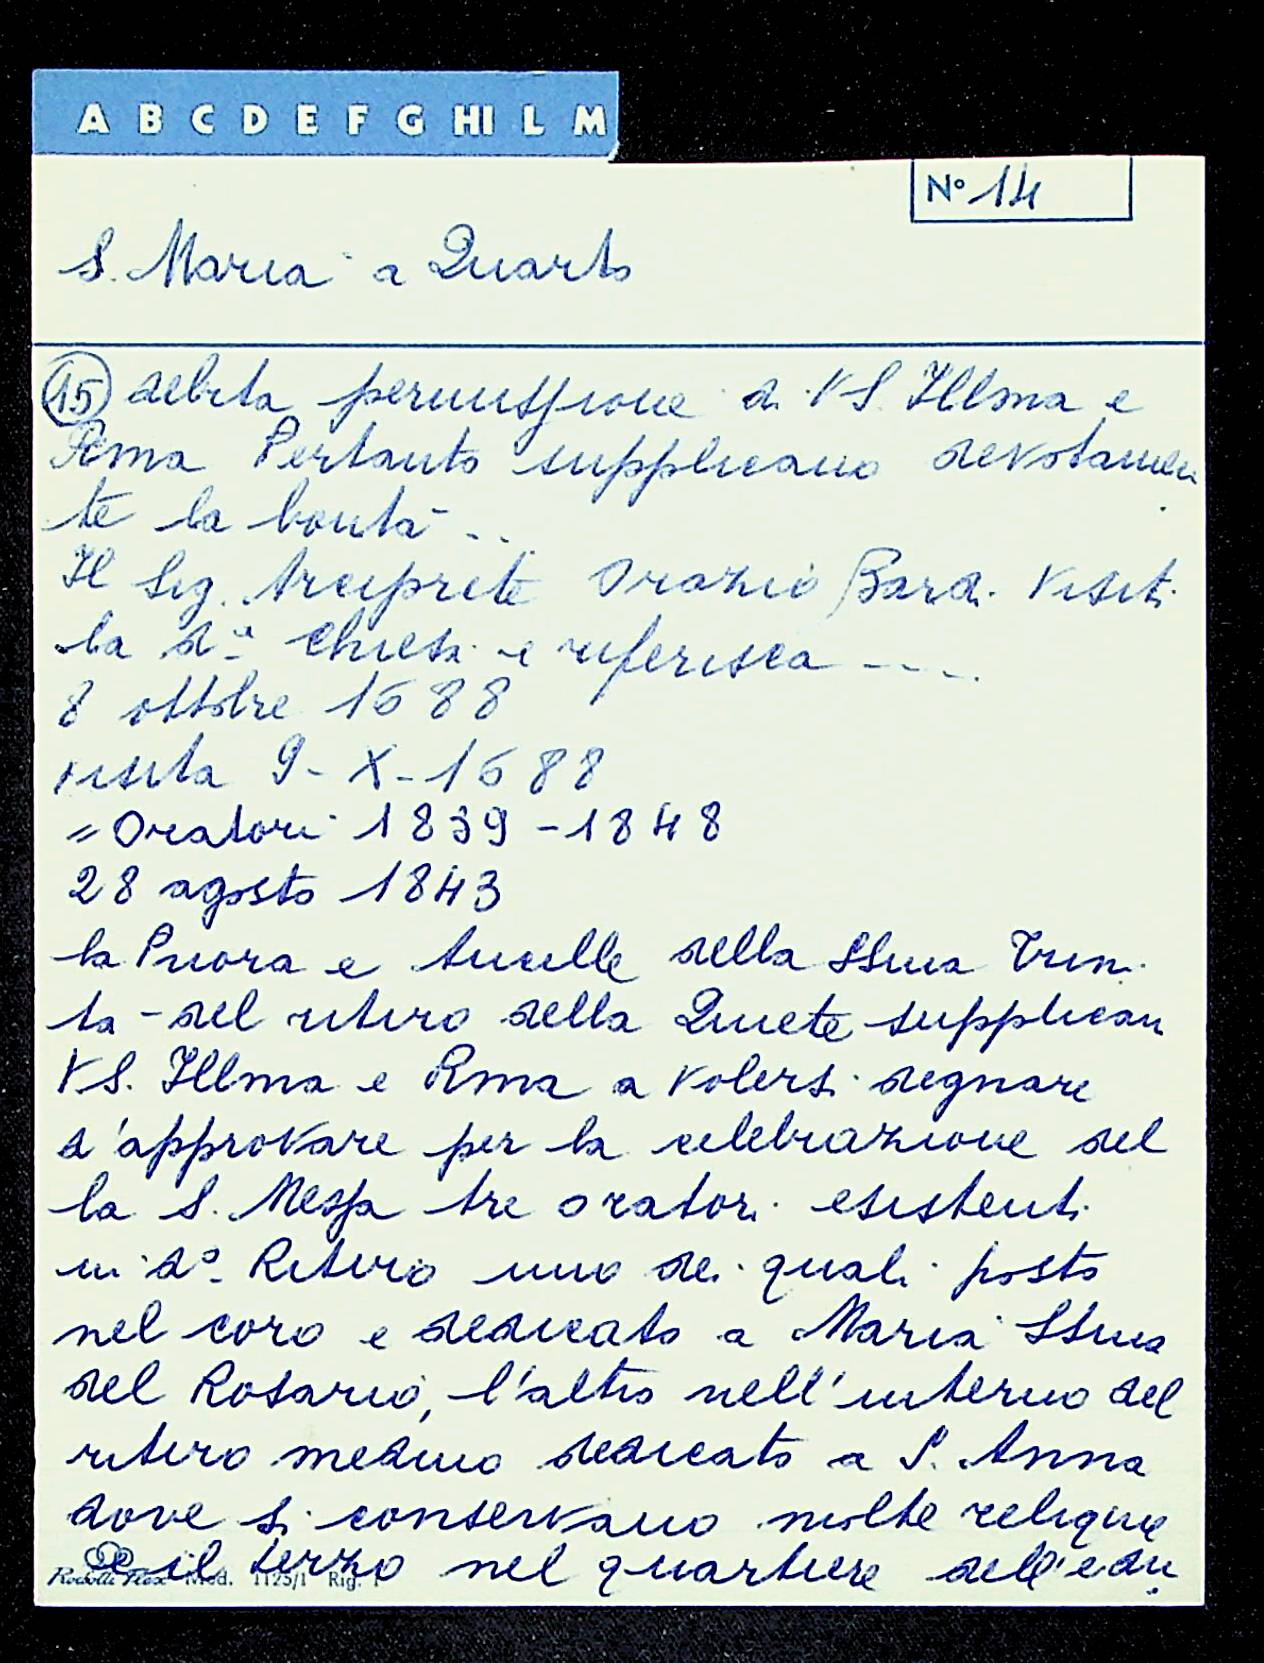 A B C D E F G HI L M
N° 14
S. Maria a Quarto
15 debita permissione di VS. Illma e
Rma Pertanto supplicano devotamen
te la bontà ..
Il Sig. Arciprete Orazio Bardi visiti
la da chiesa e riferisca ----
8 ottobre 1688
visita 9-X-1688
= Oratori 1839-1848
28 agosto 1843
la Priora e Ancille della SSma Trini
tà del ritiro della Quiete supplican
VS. Illma e Rma a volersi degnare
d'approvare per la celebrazione del
la S. Messa tre oratori esistenti
in do Ritiro uno dei quali posto
nel coro e dedicato a Maria SSma
del Rosario, l'altro nell'interno del
ritiro medmo dedicato a S. Anna
dove si conservano molte reliquie
e il terzo nel quartiere dell'edu
Mod. 1125/1 Rig. 1